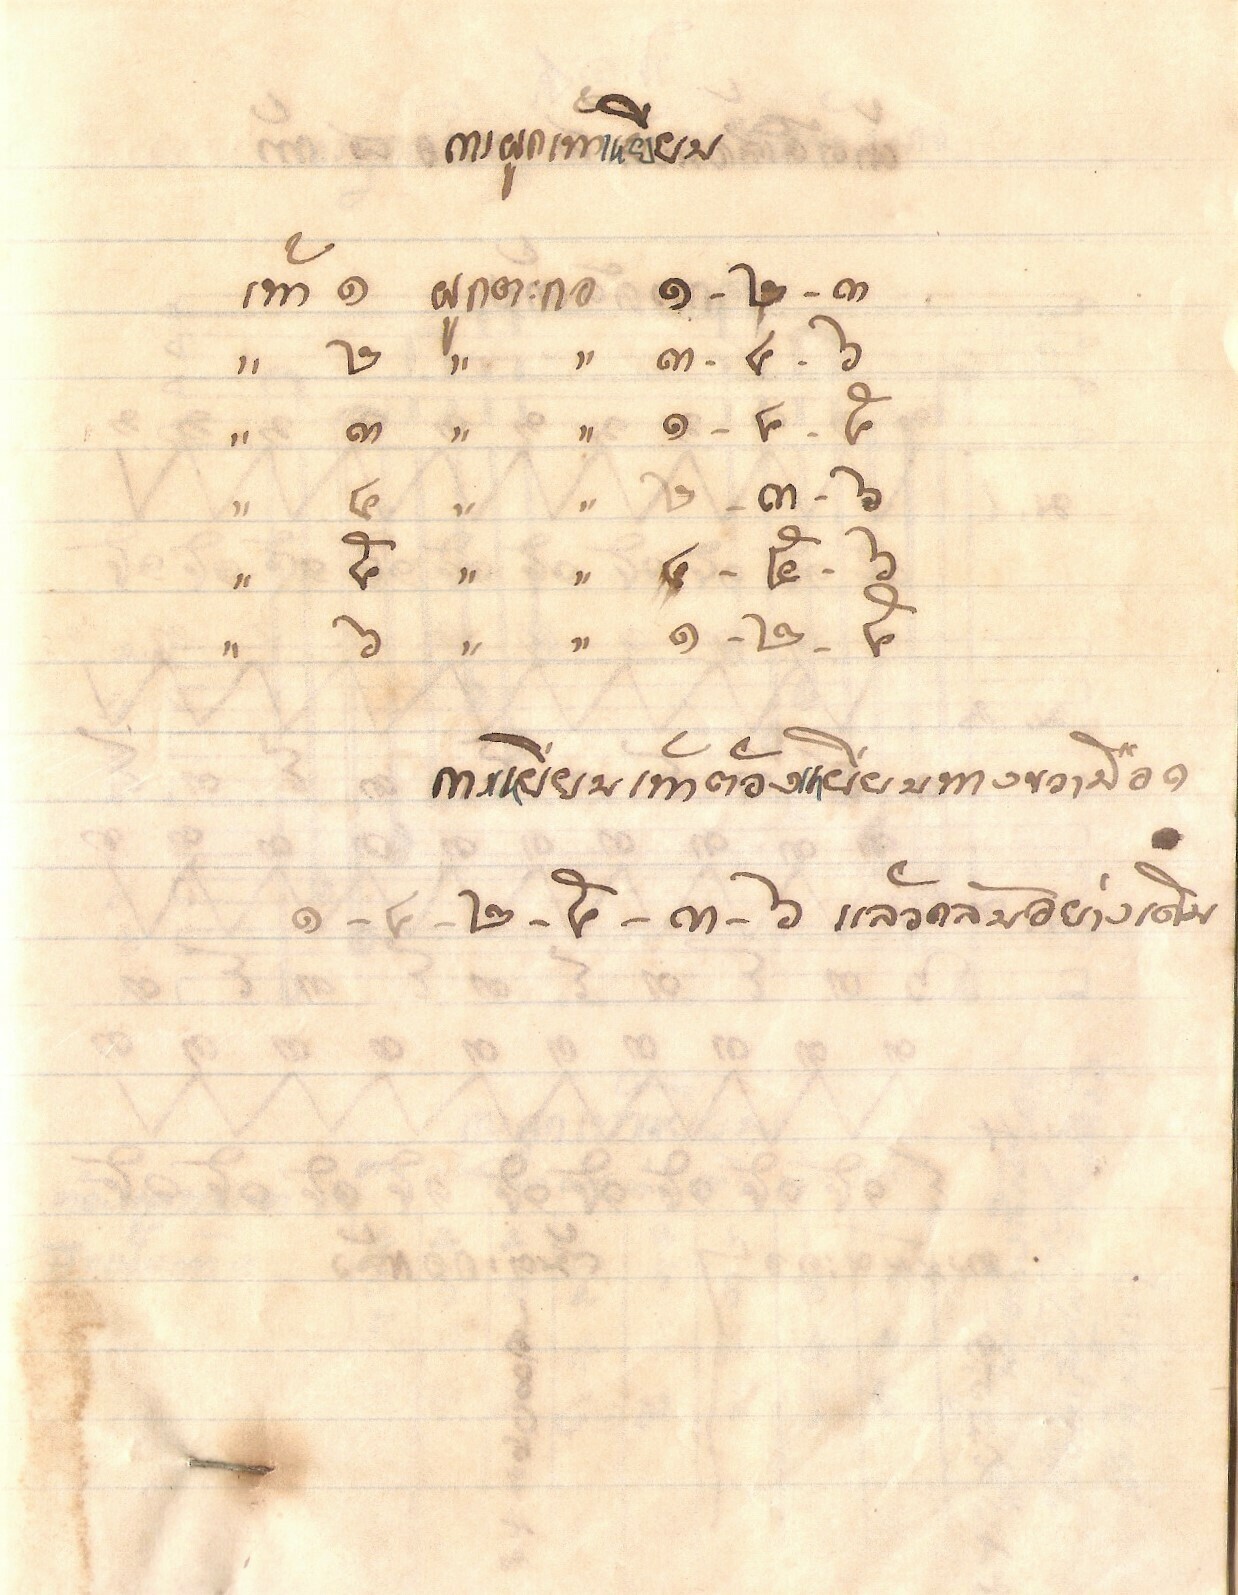 การผูกเท้าเหยียบ
เท้า ๑ ผูกตะกอ ๑ - ๒ - ๓
" ๒ " " ๓ - ๔ - ๖
" ๓ " " ๑ - ๔ - ๕
" ๔ " " ๒ - ๓ - ๖
" ๕ " " ๔ - ๕ - ๖
" ๖ " " ๑ - ๒ - ๕
การเหยียบเท้าต้องเหยียบทางขวามือ ๑
๑ - ๔ - ๒ - ๕ - ๓ - ๖ แล้วกลับอย่างเดิม